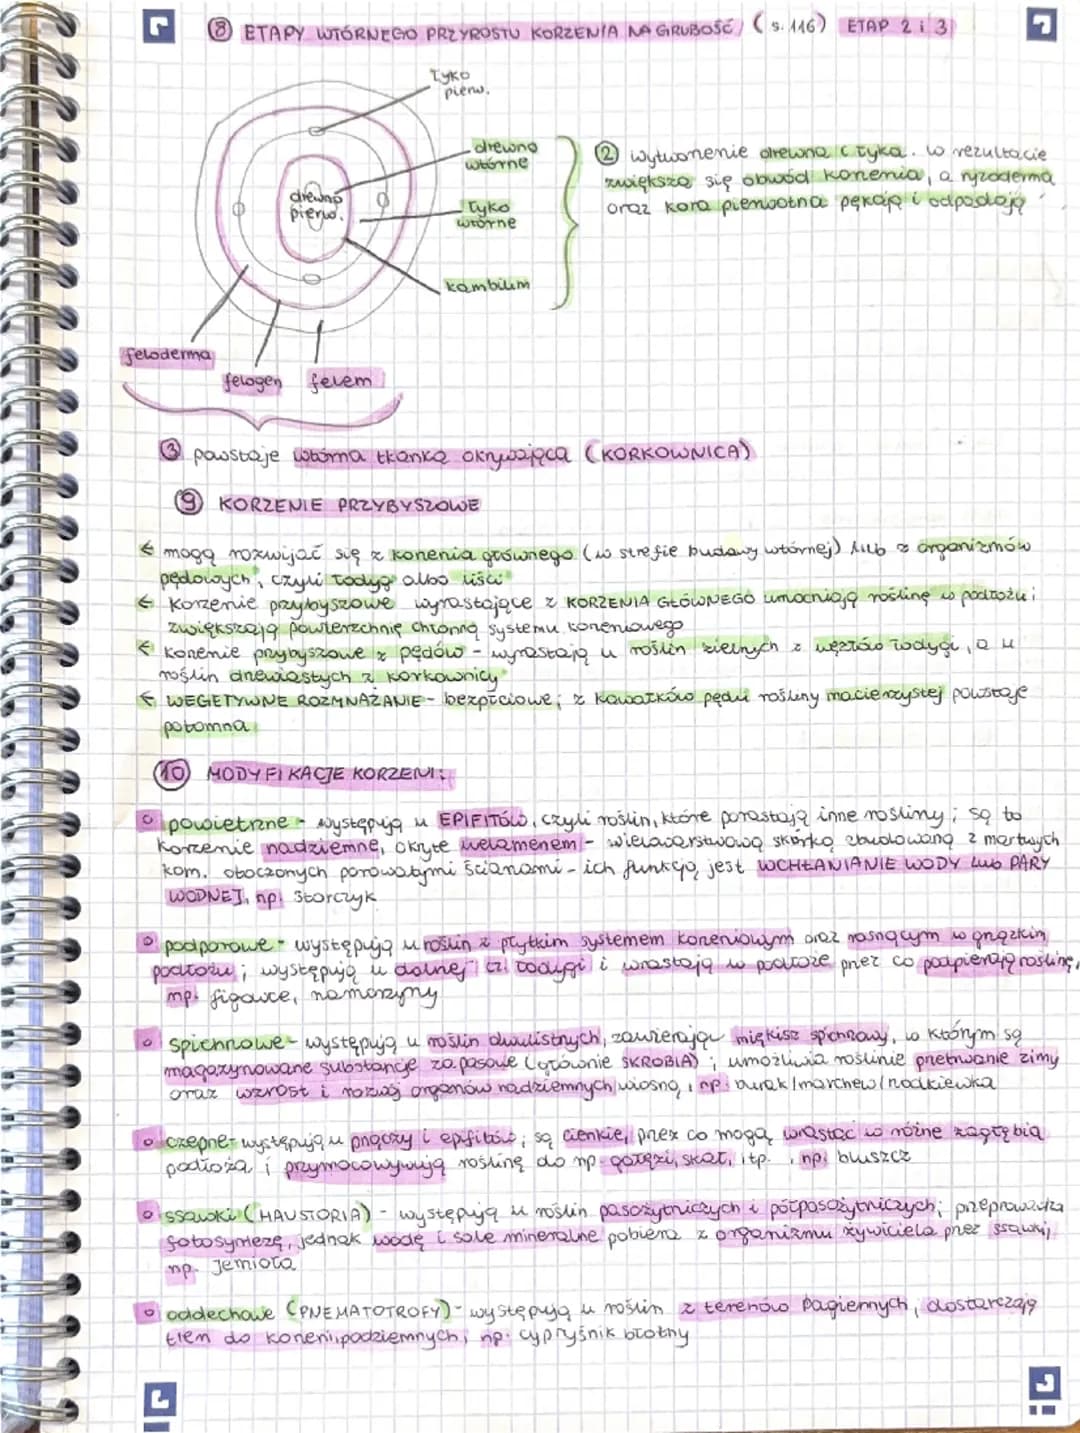 ⑧ ETAPY WTÓRNEGO PRZYROSTU KORZENIA NA GRUBOŚĆ (s. 116) ETAP 2 i 3
łyko
pierw.
drewno
wtórne
drewno
pierw.
łyko
wtórne
kambium
② wytworzenie drewna i łyka. w rezultacie
zwiększa się obwód korzenia, a ryzoderma
oraz kora pierwotna pękają i odpadają
feloderma
felogen
felem
③ powstaje wtórna tkanka okrywająca (KORKOWNICA)
⑨ KORZENIE PRZYBYSZOWE
← mogą rozwijać się z korzenia głównego (w strefie budowy wtórnej) lub z organizmów
pędowych, czyli łodyg albo liści
← korzenie przybyszowe wyrastające z KORZENIA GŁÓWNEGO umacniają roślinę w podłożu i
zwiększają powierzchnię chłonną systemu korzeniowego
← korzenie przybyszowe z pędów - wyrastają u roślin zielnych z węzłów łodygi, a u
roślin drzewiastych z korkownicy
← WEGETYWNE ROZMNAŻANIE - bezpłciowe; z kawałków pędu rośliny macierzystej powstaje
potomna
⑩ MODYFIKACJE KORZENI:
powietrzne - występują u EPIFITÓW, czyli roślin, które porastają inne rośliny; są to
korzenie nadziemne, okryte welamenem - wielowarstwową skórką zbudowaną z martwych
kom. otoczonych porowatymi ścianami - ich funkcją jest WCHŁANIANIE WODY lub PARY
WODNEJ, np. storczyk
podporowe - występują u roślin z płytkim systemem korzeniowym oraz rosnącym w grząskim
podłożu; występują u dolnej cz. łodygi i wrastają w podłoże przez co podpierają roślinę,
np. figowce, namorzyny
spichrzowe - występują u roślin dwulistnych, zawierając miękisz spichrzowy, w którym są
magazynowane substancje zapasowe (głównie SKROBIA); umożliwia roślinie przetrwanie zimy
oraz wzrost i rozwój organów nadziemnych wiosną, np. burak/marchew/rzodkiewka
czepne - występują u pnączy i epifitów; są cienkie, przez co mogą wrastać w różne zagłębia
podłoża i przymocowywują roślinę do np. gałęzi, skał, itp., np. bluszcz
ssawki (HAUSTORIA) - występują u roślin pasożytniczych i półpasożytniczych; przeprowadza
fotosyntezę, jednak wodę i sole mineralne pobiera z organizmu żywiciela przez ssawki,
np. jemioła
oddechowe (PNEMATOTROFY) - występują u roślin z terenów bagiennych, dostarczają
tlen do korzeni podziemnych, np. cypryśnik błotny